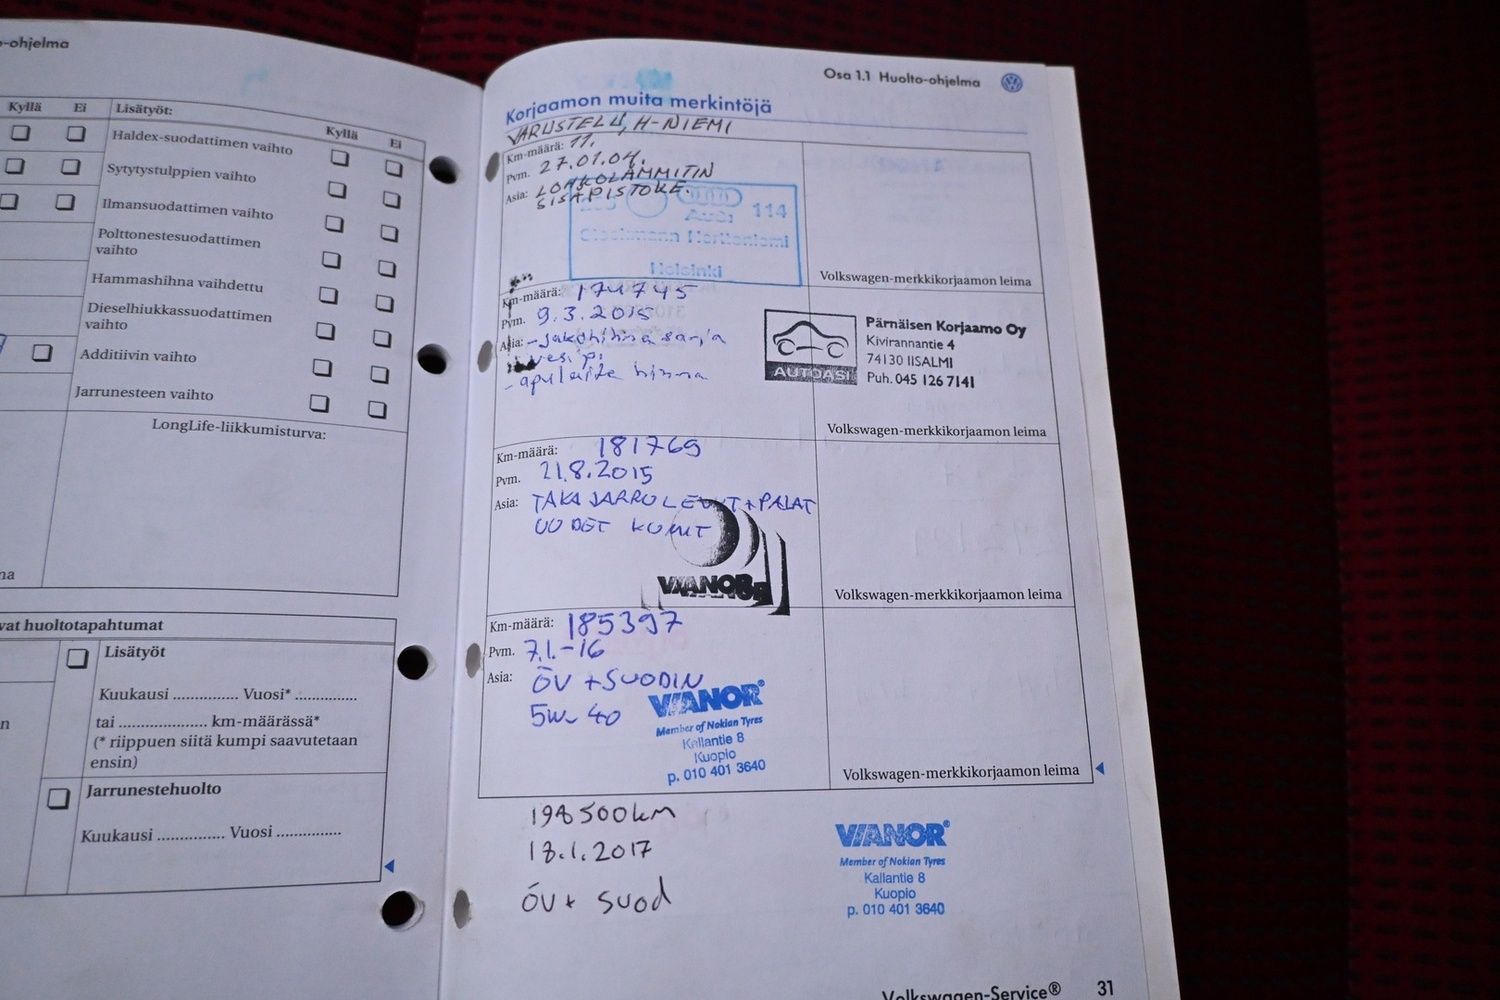 o-ohjelma
Kyllä Ei Lisätyöt: Kyllä Ei
Haldex-suodattimen vaihto
Sytytystulppien vaihto
Ilmansuodattimen vaihto
Polttonestesuodattimen
vaihto
Hammashihna vaihdettu
Dieselhiukkassuodattimen
vaihto
Additiivin vaihto
Jarrunesteen vaihto
LongLife-liikkumisturva:
na
vat huoltotapahtumat
Lisätyöt
Kuukausi ............... Vuosi* ..............
tai .................... km-määrässä*
(* riippuen siitä kumpi saavutetaan
ensin)
Jarrunestehuolto
Kuukausi ............... Vuosi ..............
Osa 1.1 Huolto-ohjelma
Korjaamon muita merkintöjä
VARUSTELU, H-NIEMI
Km-määrä: 11.
Pvm. 27.01.04.
Asia: LOHKOLÄMMITIN
SISÄPISTOKE.
Audi 114
Stockmann Herttoniemi
Helsinki
Volkswagen-merkkikorjaamon leima
Km-määrä: 174745
Pvm. 9.3.2015
Asia: -jakohihna sarja
vesip.
-apulaite hihna
AUTOASI
Pärnäisen Korjaamo Oy
Kivirannantie 4
74130 IISALMI
Puh. 045 126 7141
Volkswagen-merkkikorjaamon leima
Km-määrä: 181769
Pvm. 21.8.2015
Asia: TAKAJARRULEVYT+PALAT
UUDET KUMIT
VIANOR
Volkswagen-merkkikorjaamon leima
Km-määrä: 185397
Pvm. 7.1.-16
Asia: ÖV +SUODIN
5W-40
VIANOR®
Member of Nokian Tyres
Kallantie 8
Kuopio
p. 010 401 3640
Volkswagen-merkkikorjaamon leima
198500km
18.1.2017
ÖV+ suod
VIANOR®
Member of Nokian Tyres
Kallantie 8
Kuopio
p. 010 401 3640
Volkswagen-Service® 31